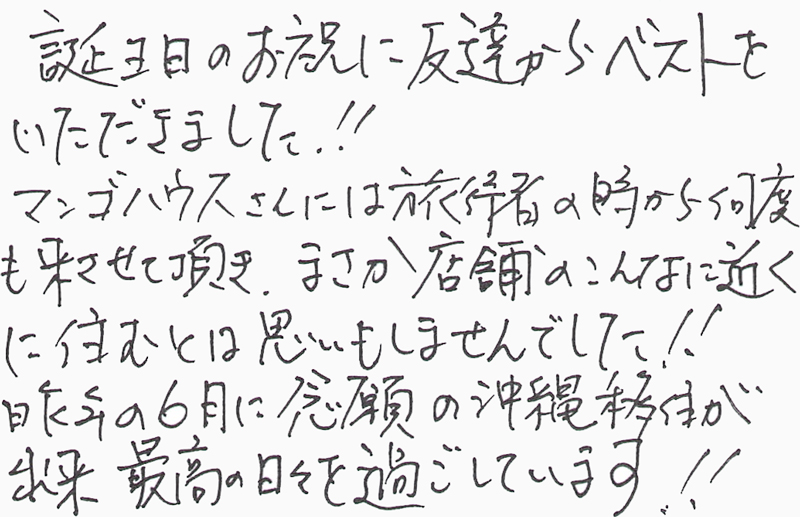 誕生日のお祝に友達からベストを
いただきました.!!
マンゴハウスさんには旅行者の時から何度
も来させて頂き、まさか店舗のこんなに近く
に住むとは思いもしませんでした!!
昨年の6月に念願の沖縄移住が
出来 最高の日々を過ごしています!!